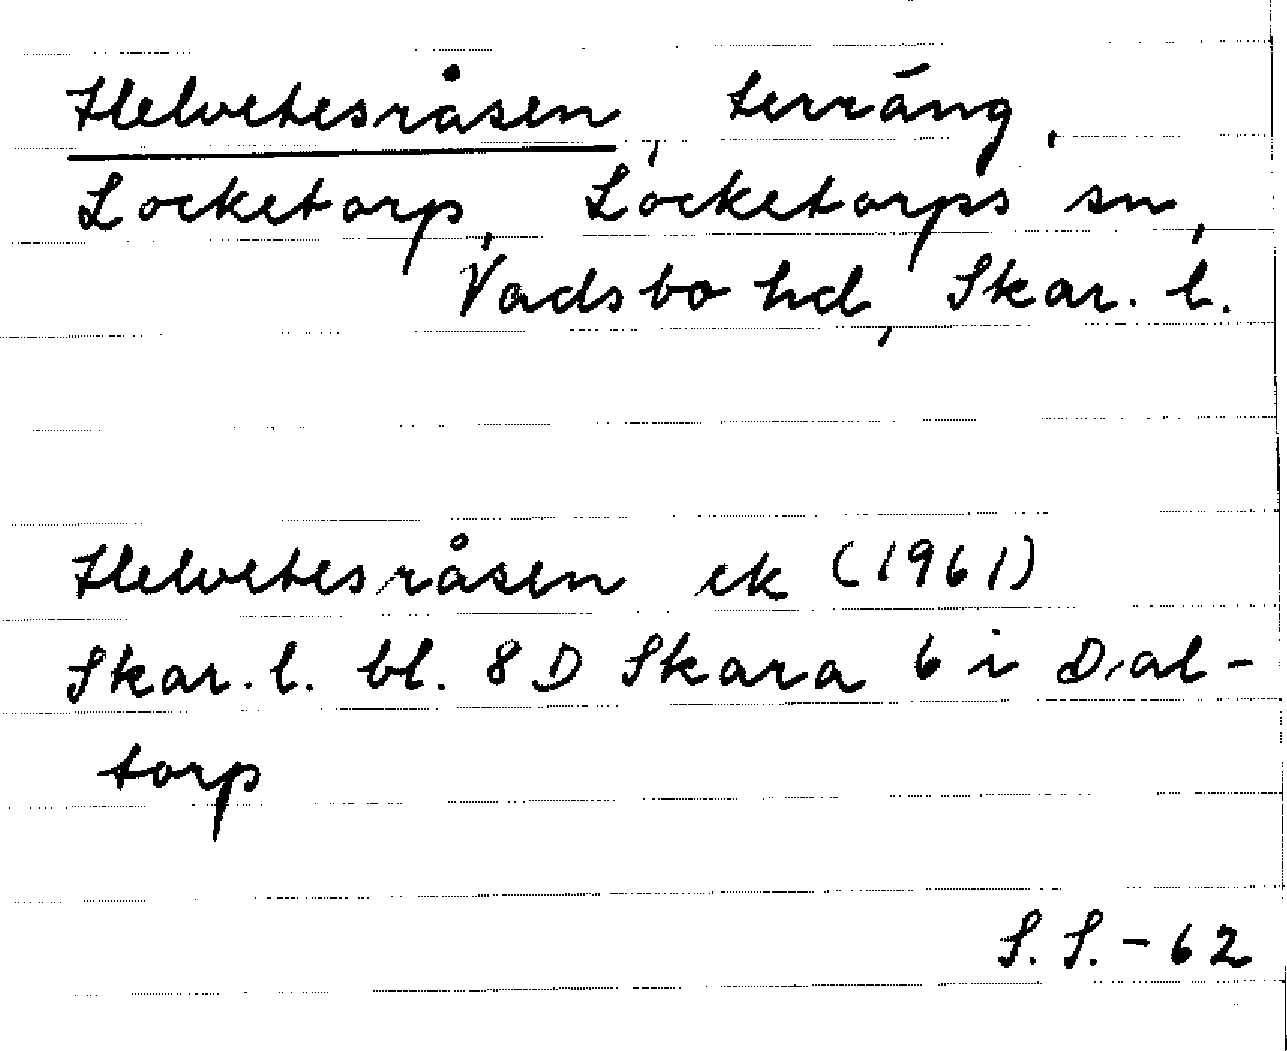 Helvetesråsen, terräng,
Locketorp, Locketorps sn,
Vadsbo hd, Skar. l.
Helvetesråsen ek (1961)
Skar. l. bl. 8 D Skara 6 i Dal-
torp
S.S.-62